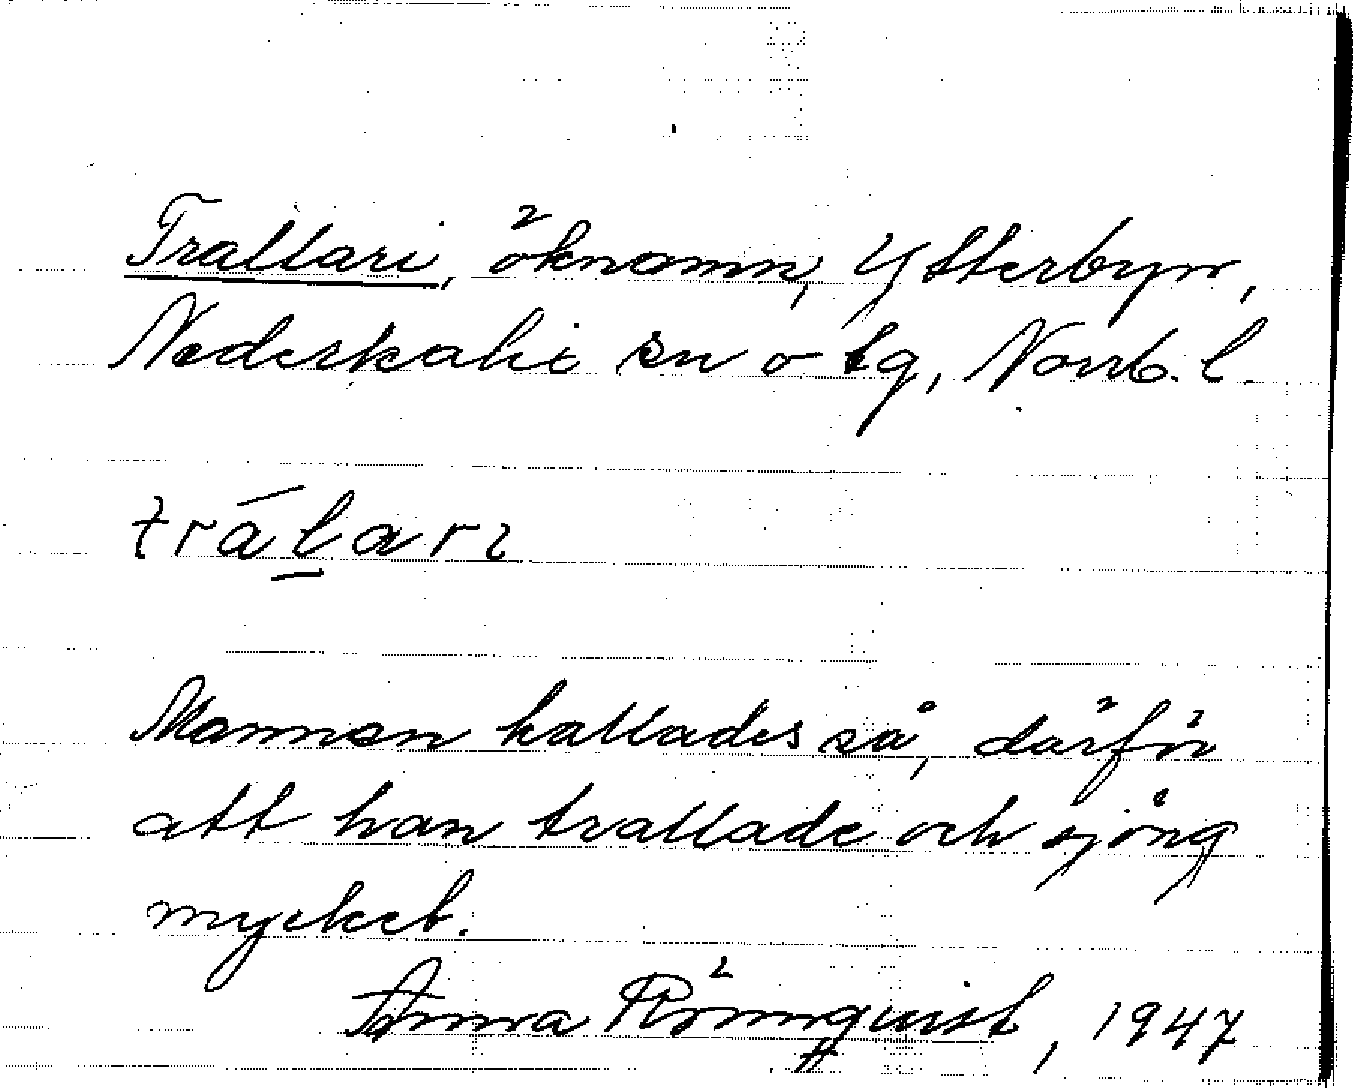 Trallari, öknamn, Ytterbyn,
Nederkalix sn o tg, Norrb. l.
trálari
Mannen kallades så, därför
att han trallade och sjöng
mycket.
Anna Römquist, 1947